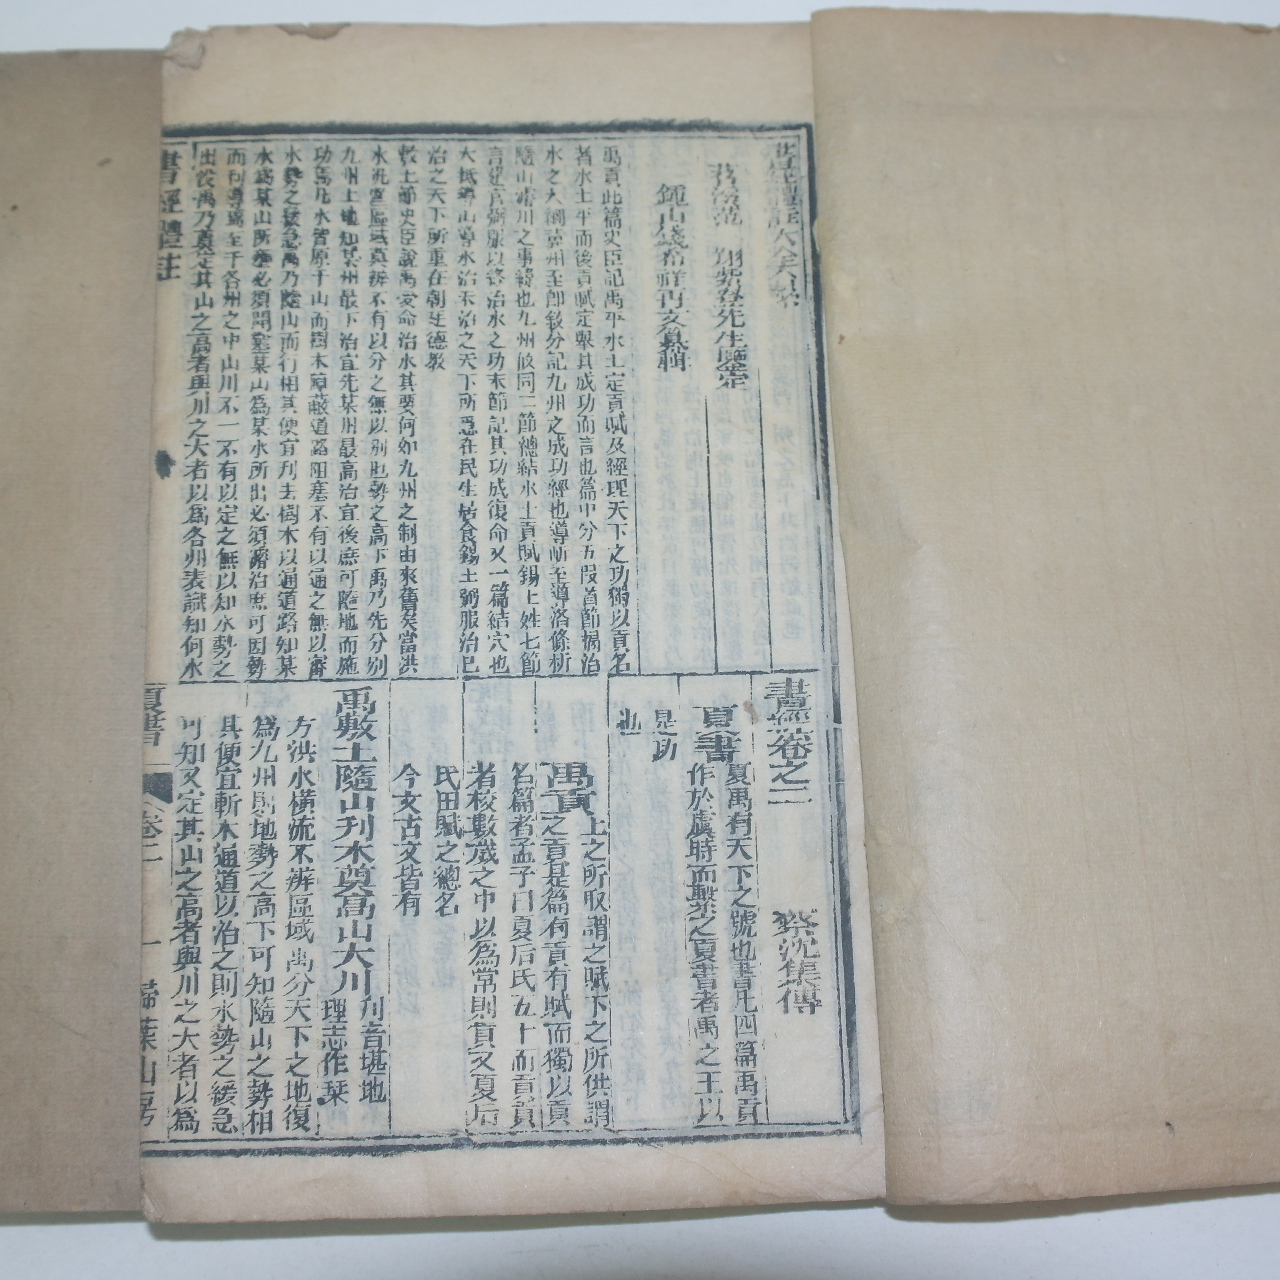 書經體註大全合參
苕溪范翔紫登先生鑒定
鍾山錢希祥再文纂輯
禹貢此篇史臣記禹平水土定貢賦及經理天下之功獨以貢名
者水土平而後貢賦定舉其成功而言也篇中分五段首節揭治
水之大綱冀州至卽敘分記九州之成功經也導岍至導洛條析
隨山濬川之事緯也九州攸同二節總結水土貢賦錫土姓七節
言建官弼服以終治水之功末節記其功成復命又一篇結穴也
大抵導山導水治未治之天下所急在民生居食錫土弼服治已
治之天下所重在朝廷德教
敷土節史臣說禹受命治水其要何如九州之制由來舊矣當洪
水汎濫區域莫辨不有以分之無以別也勢之高下禹乃先分別
九州土地知某州最下治宜先某州最高治宜後庶可隨地而施
功焉凡水皆原于山而樹木障蔽道路阻塞不有以通之無以審
水勢之緩急禹乃隨山而行相其便宜刋去樹木以通道路知某
水爲某山所壅必須開鑿某山爲某水所出必須濬治庶可因勢
而利導焉至于各州之中山川不一不有以定之無以知水勢之
出沒禹乃奠定其山之高者與川之大者以爲各州表識知何水
書經卷之二
蔡沈集傳
夏書
夏禹有天下之號也書凡四篇禹貢
作於虞時而繫之夏書者禹之王以
是功
也
禹貢
上之所取謂之賦下之所供謂
之貢是篇有貢有賦而獨以貢
名篇者孟子曰夏后氏五十而貢貢
者校數歲之中以爲常則貢又夏后
氏田賦之總名
今文古文皆有
禹敷土隨山刋木奠高山大川
刋音堪地
理志作栞
方洪水橫流不辨區域禹分天下之地復
爲九州則地勢之高下可知隨山之勢相
其便宜斬木通道以治之則水勢之緩急
可知又定其山之高者與川之大者以爲
書經體註
夏書
卷二
一
掃葉山房